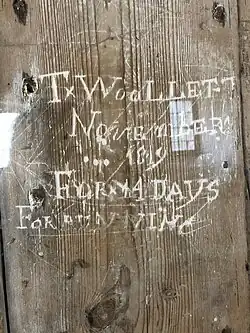 T x WOOLLETT
NOVEMBER
1819
FOR 14 DAYS
FOR